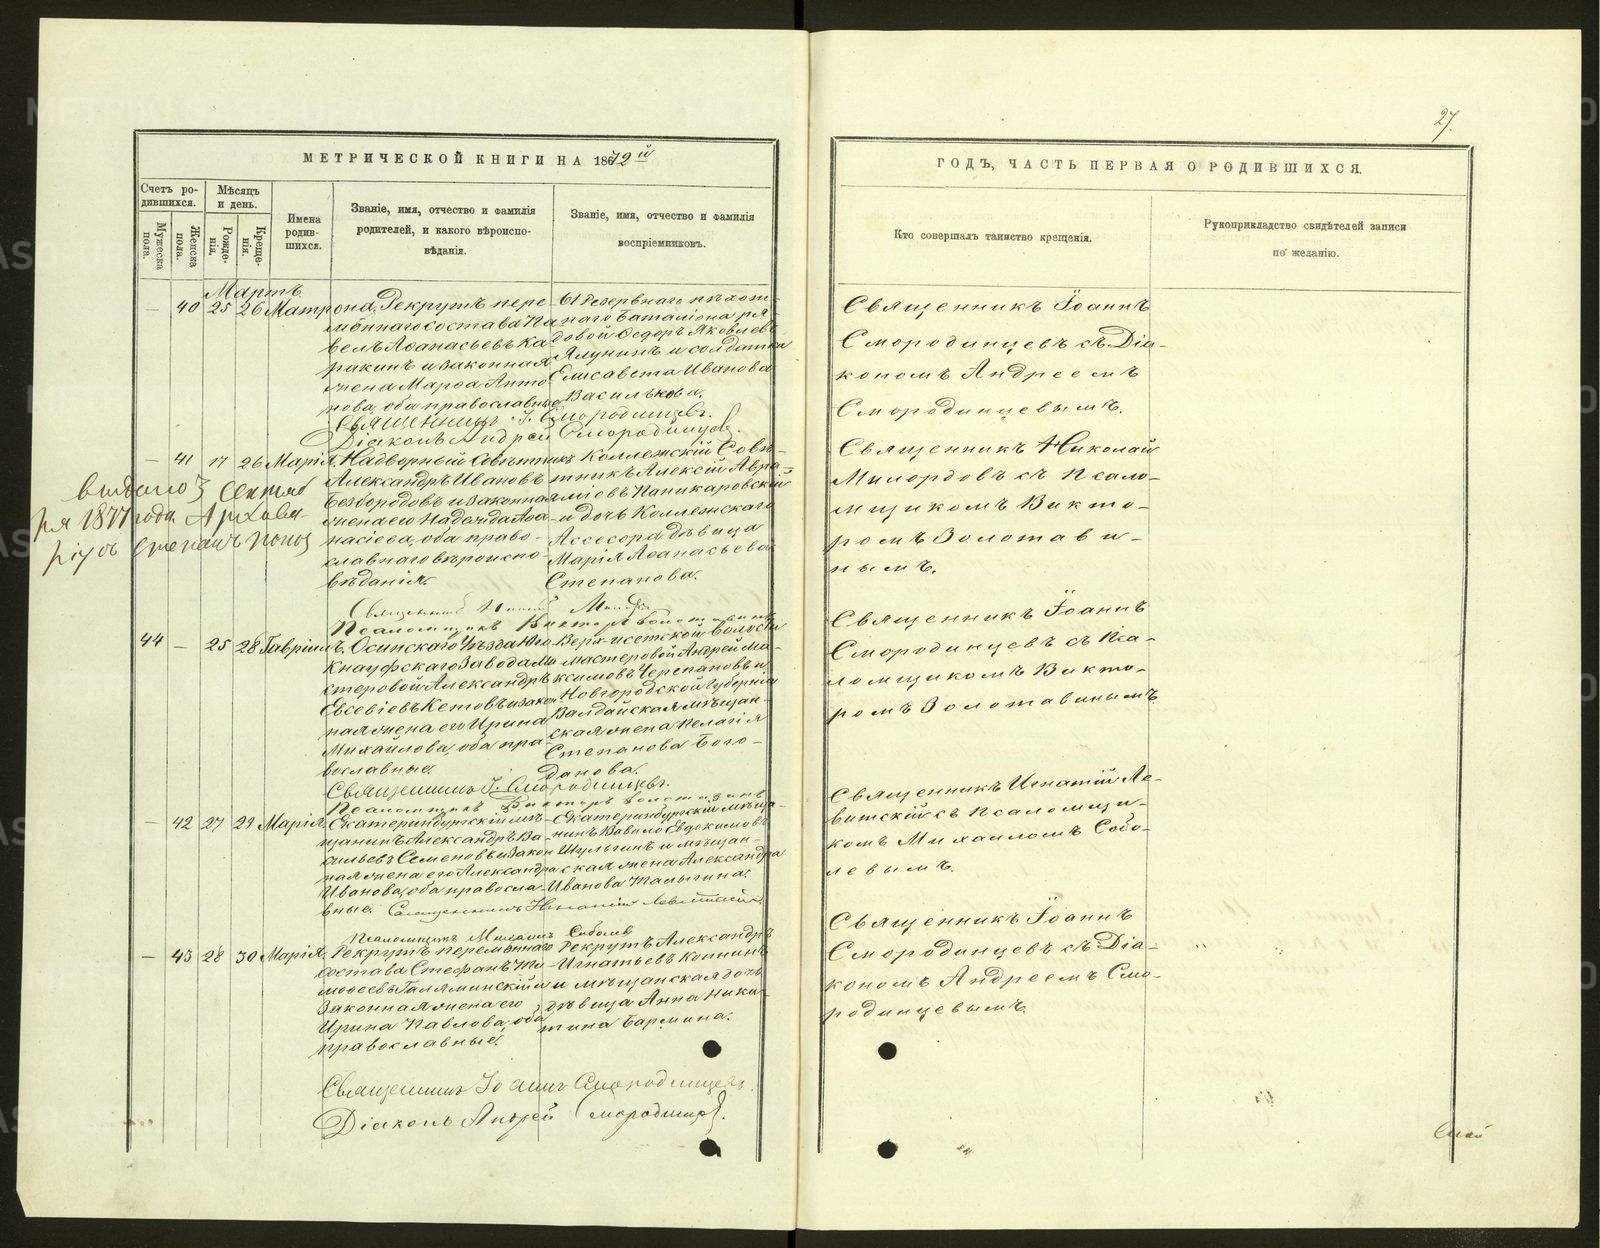 27.
МЕТРИЧЕСКОЙ КНИГИ НА 1872й
ГОДЪ, ЧАСТЬ ПЕРВАЯ О РОДИВШИХСЯ.
Счетъ ро-
дившихся.
Мужеска
пола.
Женска
пола.
Мѣсяцъ
и день.
Рожде-
нія.
Креще-
нія.
Имена
родив-
шихся.
Званіе, имя, отчество и фамилія
родителей, и какого вѣроиспо-
вѣданія.
Званіе, имя, отчество и фамилія
воспріемниковъ.
Кто совершалъ таинство крещенія.
Рукоприкладство свидѣтелей записи
по желанію.
Мартъ
— 40 25 26 Матрона
Рекрутъ пере-
мѣннаго состава Па-
велъ Аѳанасьевъ Ка-
ракинъ и законная
жена Марѳа Анто-
нова, оба православные
61 резервнаго пѣхот-
наго баталіона ря-
довой Ѳедоръ Яковлевъ
Ялунинъ и солдатка
Елисавета Иванова
Василькова.
Священникъ Іоаннъ
Смородинцевъ съ Діа-
кономъ Андреемъ
Смородинцевымъ.
Священникъ І. Смородинцевъ.
Діаконъ Андрей Смородинцевъ.
— 41 17 26 Марія
Надворный Совѣтникъ
Александръ Ивановъ
Безбородовъ и законная
жена его Надежда Аѳа-
насіева, оба право-
славнаго вѣроиспо-
вѣданія.
Коллежскій Совѣ-
тникъ Алексѣй Авра-
міевъ Паникаровскій
и дочь Коллежскаго
Ассесора дѣвица
Марія Аѳанасьева
Степанова.
Священникъ Николай
Милордовъ съ Псало-
мщикомъ Викто-
ромъ Золотави-
нымъ.
выдано 3 Сентяб
ря 1877 года.
Степанъ Попов
Священникъ
Псаломщикъ Викторъ Золотавинъ
44 — 25 28 Гавріилъ
Осинскаго Уѣзда Юго-
Кнауфскаго завода Ма-
стеровой Александръ
Евсевіевъ Кетовъ и закон-
ная жена его Ирина
Михайлова, оба пра-
вославные.
Верх-Исетской волости
мастеровой Андрей Ма-
ксимовъ Черепановъ и
Новгородской Губерніи
Валдайская мѣщан-
ская жена Пелагія
Степанова Бого-
данова.
Священникъ Іоаннъ
Смородинцевъ съ Пса-
ломщикомъ Викто-
ромъ Золотавинымъ
Священникъ І. Смородинцевъ.
Псаломщикъ Викторъ Золотавинъ
— 42 27 29 Марія
Екатеринбургскій мѣ-
щанинъ Александръ Ва-
сильевъ Семеновъ и закон
ная жена его Александра
Иванова, оба правосла-
вные.
Екатеринбургскій мѣща-
нинъ Вавило Евдокимовъ
Шулыгинъ и мѣщан-
ская жена Александра
Иванова Талыгина.
Священникъ Игнатій Ле-
витскій съ Псаломщи-
комъ Михаиломъ Собо-
левымъ.
Священникъ Игнатій Левитскій.
Псаломщикъ Михаилъ Соболев
— 43 28 30 Марія
Рекрутъ перемѣннаго
состава Стефанъ Ти-
моѳеевъ Галяминскій
законная жена его
Ирина Павлова, оба
православные.
Рекрутъ Александръ
Игнатьевъ Копнинъ
и мѣщанская дочь
дѣвица Анна Ники-
тина Бармина.
Священникъ Іоаннъ
Смородинцевъ съ Діа-
кономъ Андреемъ Смо-
родинцевымъ.
Священникъ Іоаннъ Смородинцевъ.
Діаконъ Андрей Смородинцевъ.
METRIKI.GASO-URAL.RU